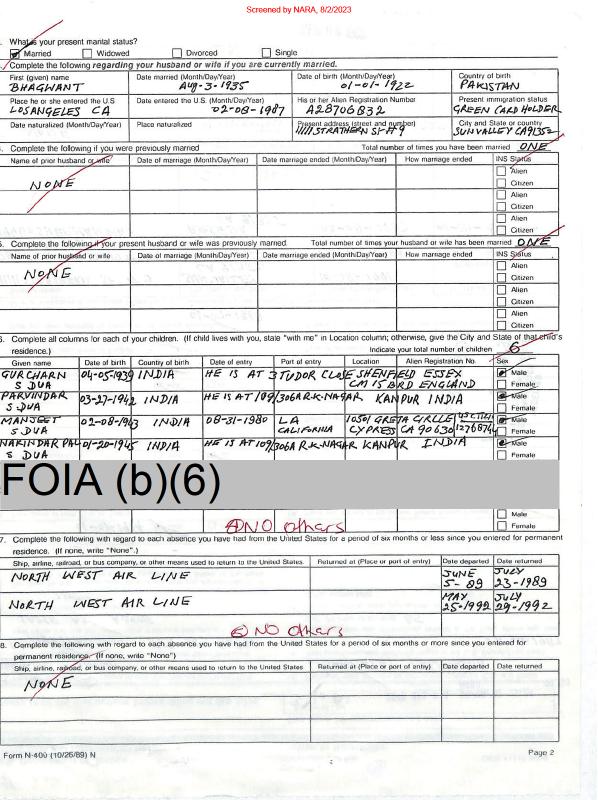 Screened by NARA, 8/2/2023
What is your present marital status?
Married Widowed Divorced Single
Complete the following regarding your husband or wife if you are currently married.
First (given) name Date married (Month/Day/Year) Date of birth (Month/Day/Year) Country of birth
BHAGWANT AUG-3-1935 01-01-1922 PAKISTAN
Place he or she entered the U.S Date entered the U.S. (Month/Day/Year) His or her Alien Registration Number Present immigration status
LOSANGELES CA 02-08-1987 A28706832 GREEN CARD HOLDER
Date naturalized (Month/Day/Year) Place naturalized Present address (street and number) City and State or country
11111 STRATHERN St #9 SUNVALLEY CA91352
Complete the following if you were previously married Total number of times you have been married ONE
Name of prior husband or wife Date of marriage (Month/Day/Year) Date marriage ended (Month/Day/Year) How marriage ended INS Status
NONE
Alien
Citizen
Alien
Citizen
Alien
Citizen
5. Complete the following if your present husband or wife was previously married Total number of times your husband or wife has been married ONE
Name of prior husband or wife Date of marriage (Month/Day/Year) Date marriage ended (Month/Day/Year) How marriage ended INS Status
NONE
Alien
Citizen
Alien
Citizen
Alien
Citizen
6. Complete all columns for each of your children. (If child lives with you, state "with me" in Location column; otherwise, give the City and State of that child's
residence.) Indicate your total number of children 6
Given name Date of birth Country of birth Date of entry Port of entry Location Alien Registration No. Sex
GURCHARN 04-05-1939 INDIA HE IS AT 3 TUDOR CLOSE SHENFIELD ESSEX Male
S DUA CM 15 8RD ENGLAND Female
PARVINDAR 03-27-1942 INDIA HE IS AT 109/306A R.K-NAGAR KANPUR INDIA Male
S DUA Female
MANJEET 02-08-1943 INDIA 08-31-1980 LA 10501 GRETA CIRCLE Male
S DUA CALIFORNIA CYPRESS CA 90630 Female
NARINDAR PAL 01-20-1945 INDIA HE IS AT 109/306A R.K-NAGAR KANPUR INDIA Male
S DUA Female
FOIA (b)(6)
Male
Female
NO others
7. Complete the following with regard to each absence you have had from the United States for a period of six months or less since you entered for permanent
residence. (If none, write "None".)
Ship, airline, railroad, or bus company, or other means used to return to the United States Returned at (Place or port of entry) Date departed Date returned
NORTH WEST AIR LINE JUNE 5-89 JULY 23-1989
NORTH WEST AIR LINE MAY 25-1992 JULY 29-1992
NO others
8. Complete the following with regard to each absence you have had from the United States for a period of six months or more since you entered for
permanent residence. (If none, write "None")
Ship, airline, railroad, or bus company, or other means used to return to the United States Returned at (Place or port of entry) Date departed Date returned
NONE
Form N-400 (10/26/89) N Page 2